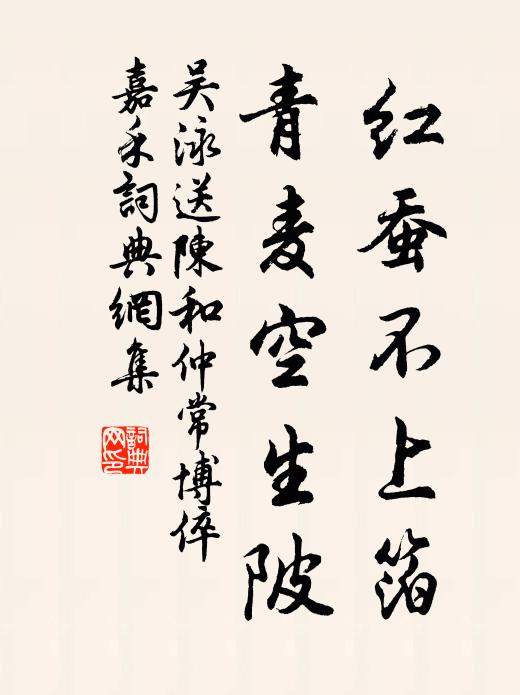 红蚕不上箔
青麦空生陂
吴泳送陳和仲常博倅
嘉禾詞典網集
詞典网印